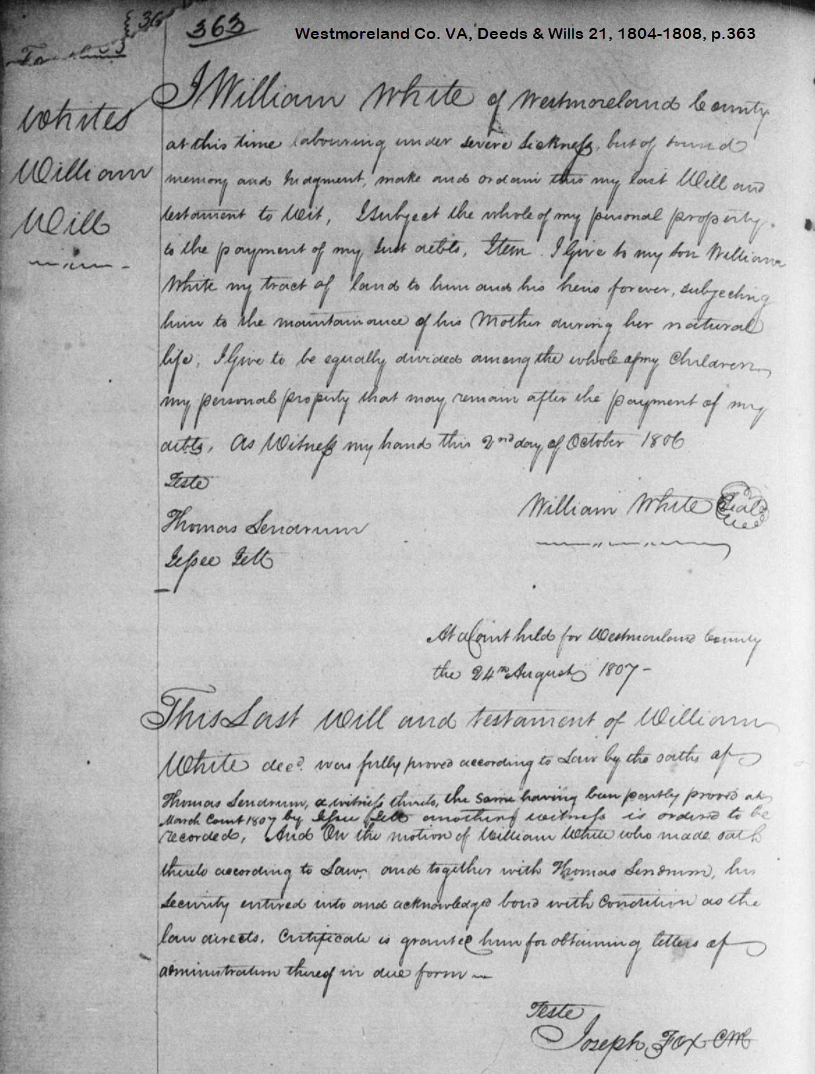 363
Westmoreland Co. VA, Deeds & Wills 21, 1804-1808, p.363
Whites
William
Will
I William White of Westmoreland County
at this time labouring under severe Sickness, but of sound
memory and Judgment, make and ordain this my last Will and
testament to Wit, I subject the whole of my personal property
to the payment of my Just debts, Item. I Give to my Son William
White my tract of land to him and his heirs forever, subjecting
him to the maintainance of his Mother during her natural
life, I Give to be equally divided among the whole of my Children
my personal property that may remain after the payment of my
debts, As Witness my hand this 2nd day of October 1806
Teste
William White Seal
Thomas Sendrum
Jessee Jett
At a Court held for Westmoreland County
the 24th August 1807-
This Last Will and testament of William
White decd. was fully proved according to Law by the oaths of
Thomas Sendrum, a witness thereto, the Same having been partly proved at
March Court 1807 by Jessee Jett another witness is ordered to be
recorded, And On the motion of William White who made oath
thereto according to Law, and together with Thomas Sendrum, his
Security entired into and acknowledged bond with Condition as the
law directs, Certificate is granted him for obtaining letters of
administration thereof in due form-
Teste
Joseph Fox CWC